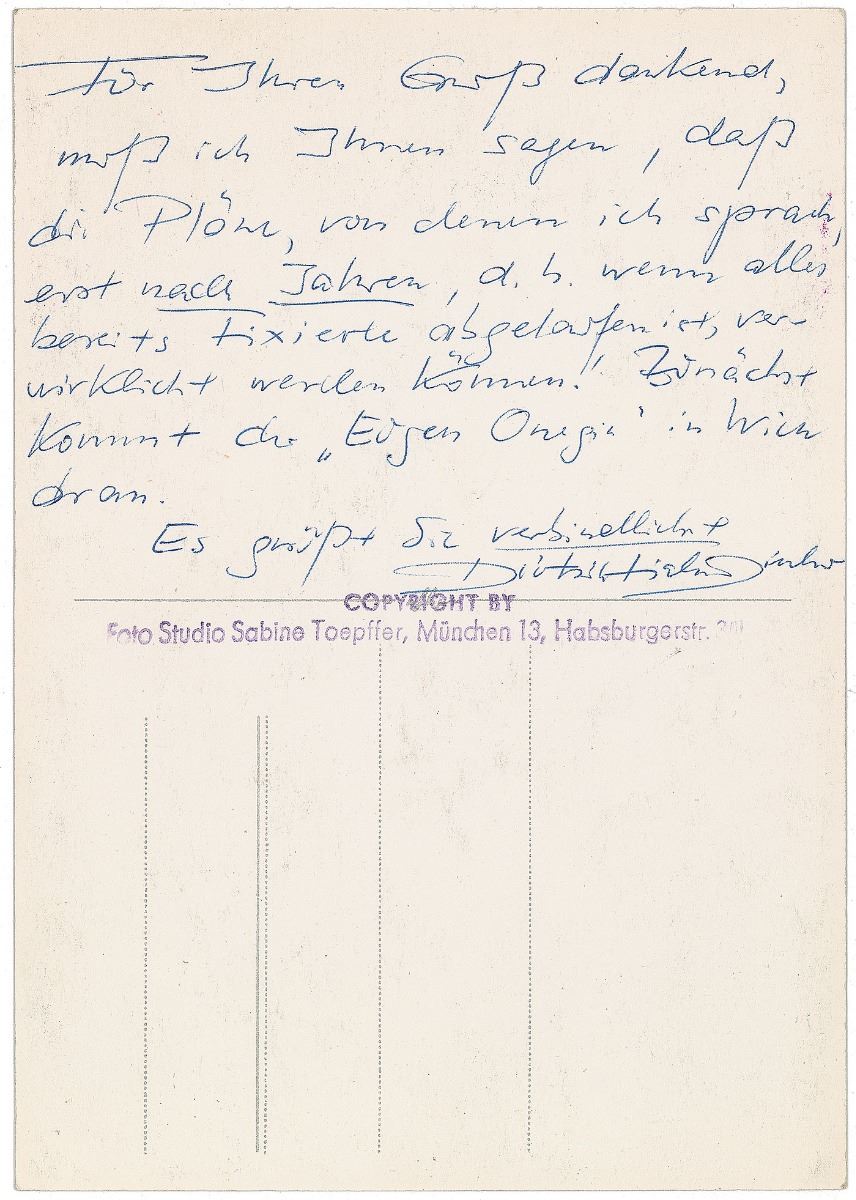 Für Ihren Gruß dankend,
muß ich Ihnen sagen, daß
die Pläne, von denen ich sprach,
erst nach Jahren, d. h. wenn alles
bereits Fixierte abgelaufen ist, ver-
wirklicht werden können! Zunächst
kommt der „Eugen Onegin" in Wien
dran.
Es grüßt Sie verbindlichst
COPYRIGHT BY
Foto Studio Sabine Toepffer, München 13, Habsburgerstr.